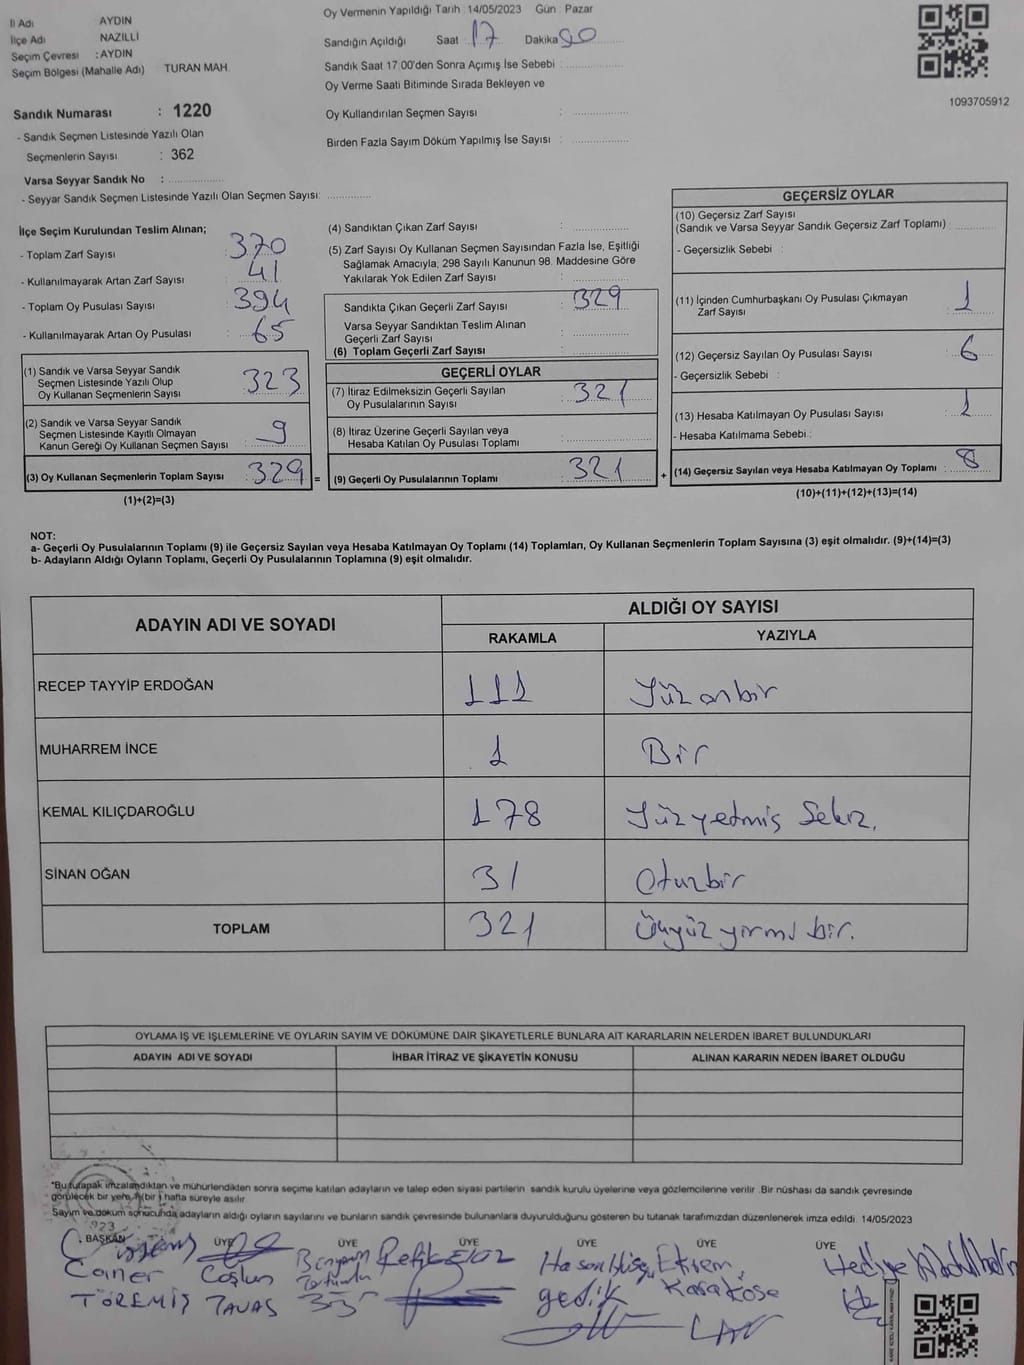 İl Adı AYDIN
İlçe Adı NAZİLLİ
Seçim Çevresi : AYDIN
Seçim Bölgesi (Mahalle Adı) TURAN MAH.
Sandık Numarası : 1220
- Sandık Seçmen Listesinde Yazılı Olan
Seçmenlerin Sayısı : 362
Varsa Seyyar Sandık No :
- Seyyar Sandık Seçmen Listesinde Yazılı Olan Seçmen Sayısı:
Oy Vermenin Yapıldığı Tarih : 14/05/2023 Gün : Pazar
Sandığın Açıldığı Saat 17 Dakika 00
Sandık Saat 17:00'den Sonra Açımış İse Sebebi :
Oy Verme Saati Bitiminde Sırada Bekleyen ve
Oy Kullandırılan Seçmen Sayısı :
Birden Fazla Sayım Döküm Yapılmış İse Sayısı :
1093705912
İlçe Seçim Kurulundan Teslim Alınan;
- Toplam Zarf Sayısı : 370
- Kullanılmayarak Artan Zarf Sayısı : 41
- Toplam Oy Pusulası Sayısı : 394
- Kullanılmayarak Artan Oy Pusulası : 65
(1) Sandık ve Varsa Seyyar Sandık
Seçmen Listesinde Yazılı Olup
Oy Kullanan Seçmenlerin Sayısı : 323
(2) Sandık ve Varsa Seyyar Sandık
Seçmen Listesinde Kayıtlı Olmayan
Kanun Gereği Oy Kullanan Seçmen Sayısı : 9
(3) Oy Kullanan Seçmenlerin Toplam Sayısı : 329 =
(1)+(2)=(3)
(4) Sandıktan Çıkan Zarf Sayısı :
(5) Zarf Sayısı Oy Kullanan Seçmen Sayısından Fazla İse, Eşitliği
Sağlamak Amacıyla, 298 Sayılı Kanunun 98. Maddesine Göre
Yakılarak Yok Edilen Zarf Sayısı :
Sandıkta Çıkan Geçerli Zarf Sayısı : 329
Varsa Seyyar Sandıktan Teslim Alınan
Geçerli Zarf Sayısı :
(6) Toplam Geçerli Zarf Sayısı :
GEÇERLİ OYLAR
(7) İtiraz Edilmeksizin Geçerli Sayılan
Oy Pusulalarının Sayısı : 321
(8) İtiraz Üzerine Geçerli Sayılan veya
Hesaba Katılan Oy Pusulası Toplamı :
(9) Geçerli Oy Pusulalarının Toplamı : 321 +
GEÇERSİZ OYLAR
(10) Geçersiz Zarf Sayısı
(Sandık ve Varsa Seyyar Sandık Geçersiz Zarf Toplamı) :
- Geçersizlik Sebebi :
(11) İçinden Cumhurbaşkanı Oy Pusulası Çıkmayan
Zarf Sayısı : 1
(12) Geçersiz Sayılan Oy Pusulası Sayısı : 6
- Geçersizlik Sebebi :
(13) Hesaba Katılmayan Oy Pusulası Sayısı : 1
- Hesaba Katılmama Sebebi :
(14) Geçersiz Sayılan veya Hesaba Katılmayan Oy Toplamı : 8
(10)+(11)+(12)+(13)=(14)
NOT:
a- Geçerli Oy Pusulalarının Toplamı (9) ile Geçersiz Sayılan veya Hesaba Katılmayan Oy Toplamı (14) Toplamları, Oy Kullanan Seçmenlerin Toplam Sayısına (3) eşit olmalıdır. (9)+(14)=(3)
b- Adayların Aldığı Oyların Toplamı, Geçerli Oy Pusulalarının Toplamına (9) eşit olmalıdır.
ADAYIN ADI VE SOYADI ALDIĞI OY SAYISI
RAKAMLA YAZIYLA
RECEP TAYYİP ERDOĞAN 111 Yüz onbir
MUHARREM İNCE 1 Bir
KEMAL KILIÇDAROĞLU 178 Yüz yetmiş Sekiz.
SİNAN OĞAN 31 Otuzbir
TOPLAM 321 Üçyüz yirmi bir.
OYLAMA İŞ VE İŞLEMLERİNE VE OYLARIN SAYIM VE DÖKÜMÜNE DAİR ŞİKAYETLERLE BUNLARA AİT KARARLARIN NELERDEN İBARET BULUNDUKLARI
ADAYIN ADI VE SOYADI İHBAR İTİRAZ VE ŞİKAYETİN KONUSU ALINAN KARARIN NEDEN İBARET OLDUĞU
*Bu tutanak imzalandıktan ve mühürlendikten sonra seçime katılan adayların ve talep eden siyasi partilerin sandık kurulu üyelerine veya gözlemcilerine verilir .Bir nüshası da sandık çevresinde
görülecek bir yere 1(bir) hafta süreyle asılır
Sayım ve döküm sonucunda adayların aldığı oyların sayılarını ve bunların sandık çevresinde bulunanlara duyurulduğunu gösteren bu tutanak tarafımızdan düzenlenerek imza edildi. 14/05/2023
BAŞKAN ÜYE ÜYE ÜYE ÜYE ÜYE ÜYE
Caner Coşkun Hasan Ekrem
TÖREMİŞ TAVAS gedik Karaköse